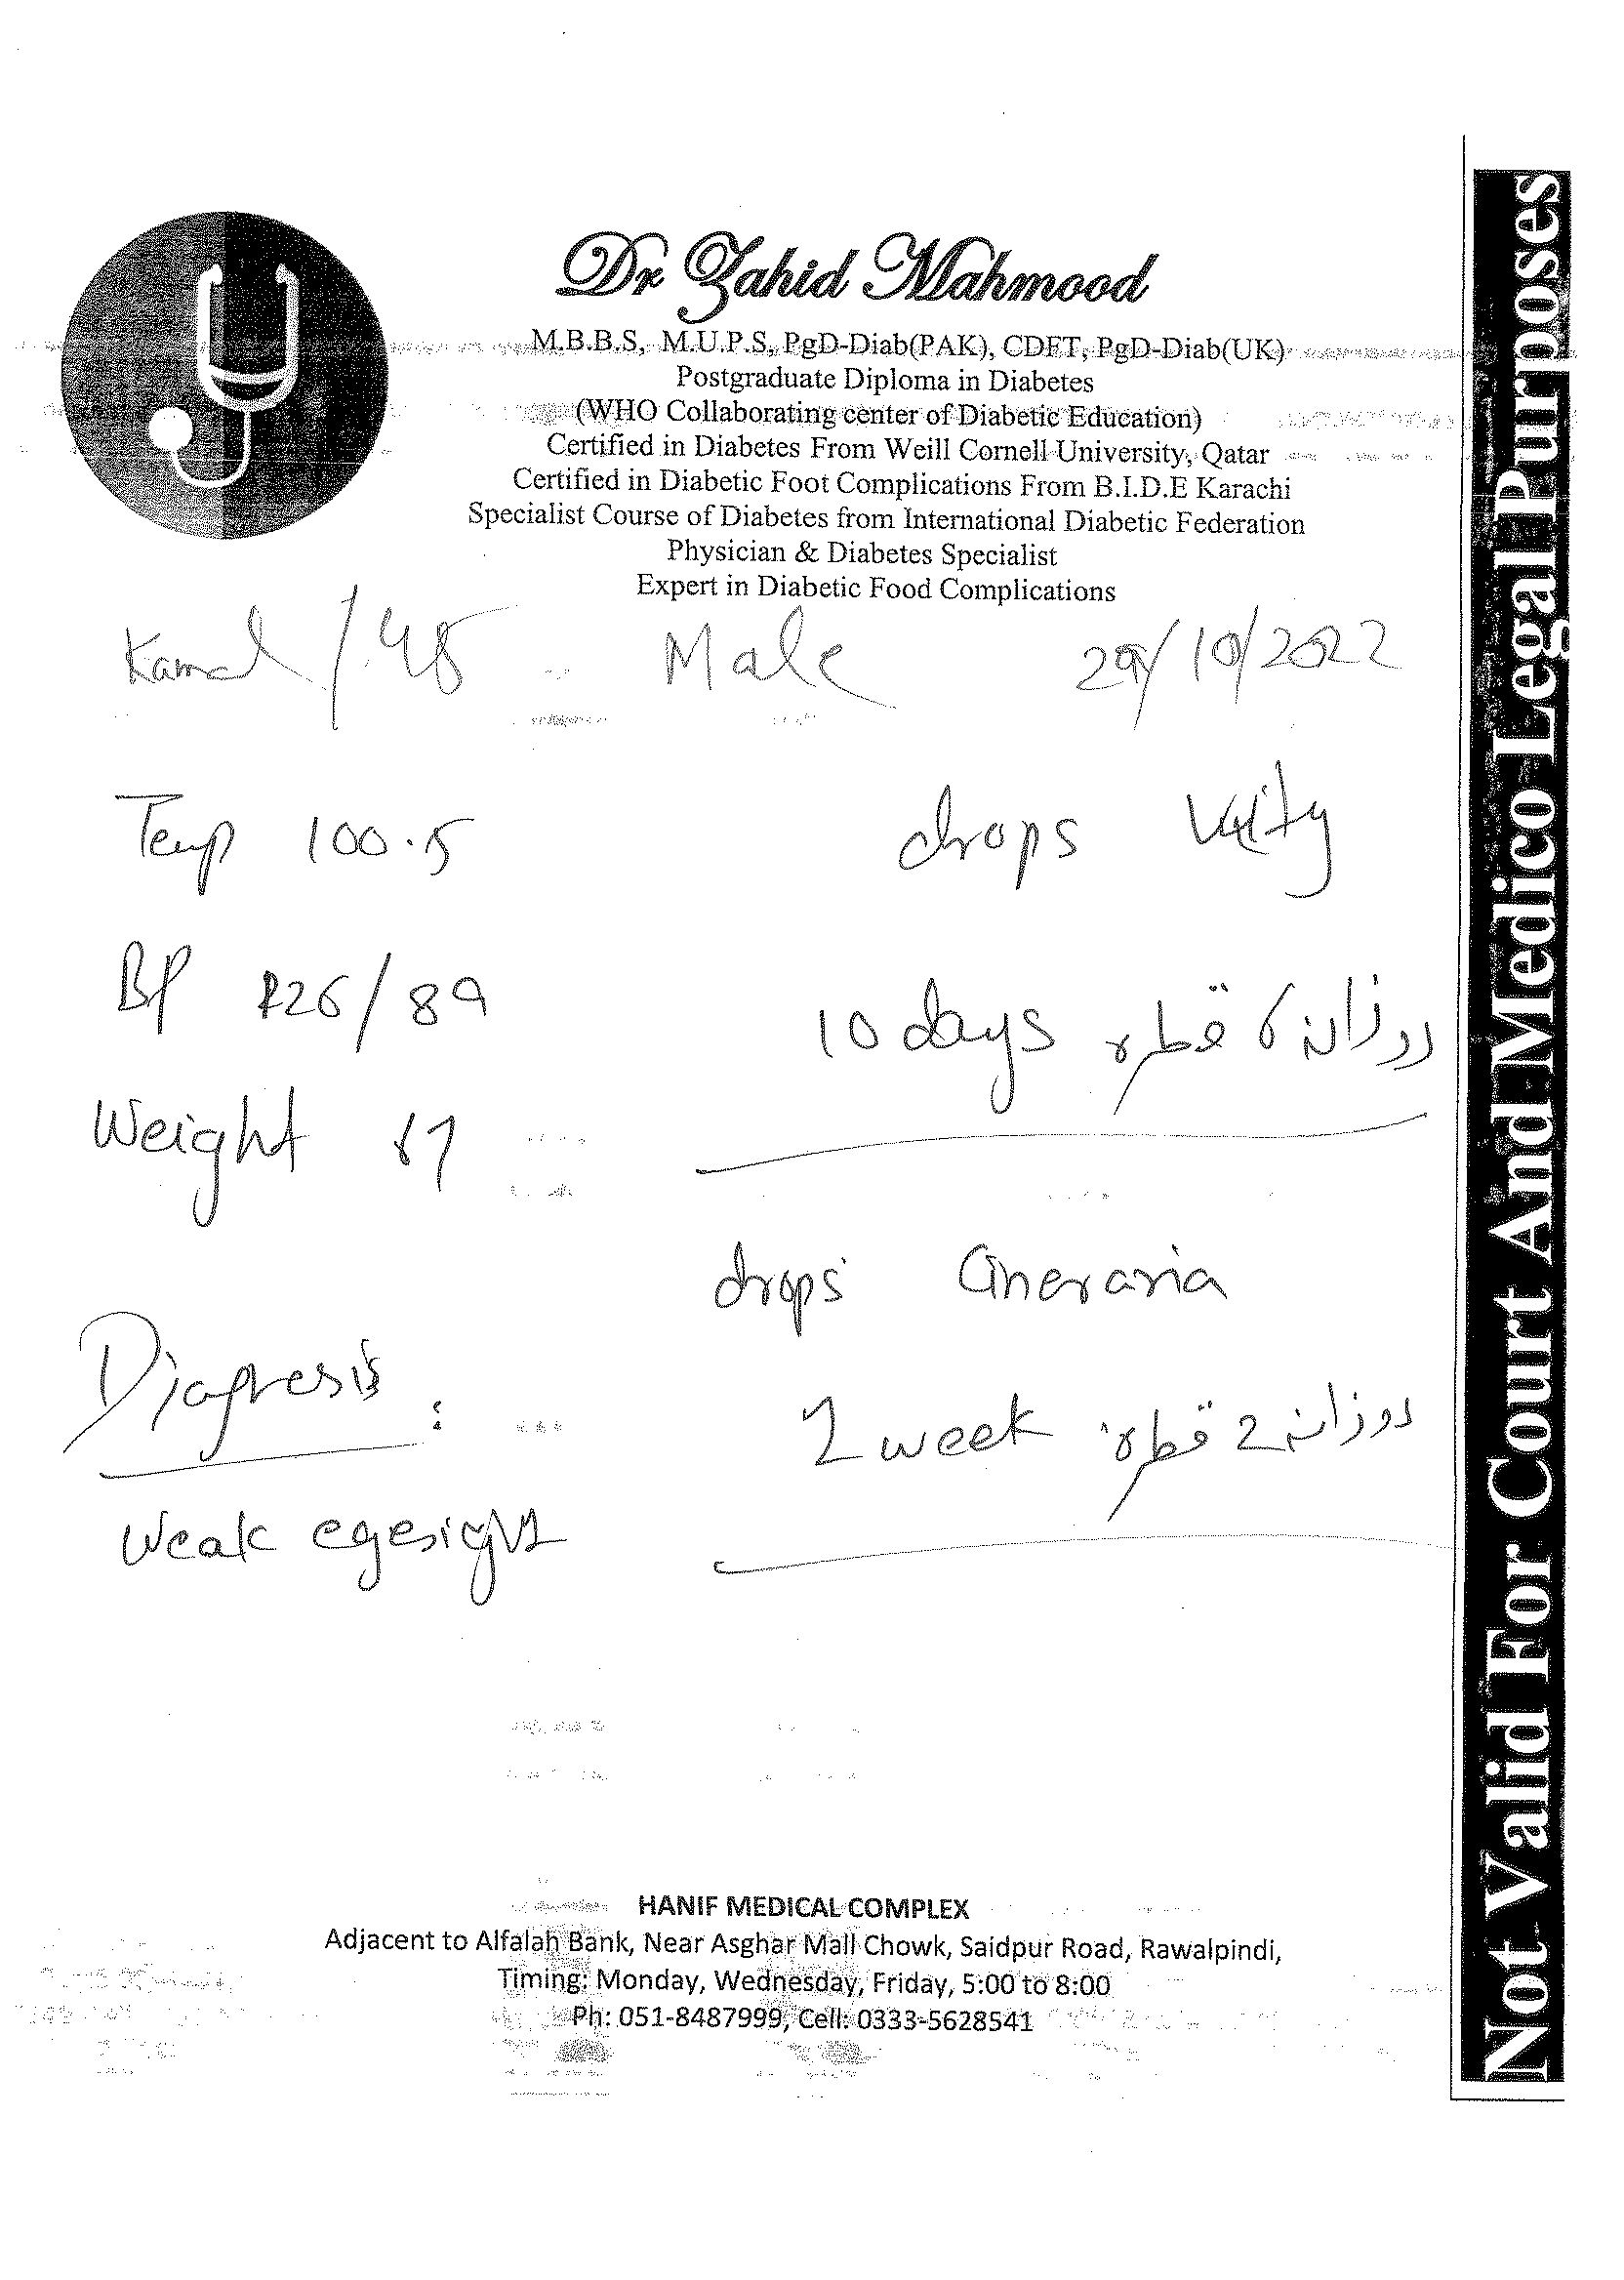 Dr Zahid Mahmood
M.B.B.S, M.U.P.S, PgD-Diab(PAK), CDFT, PgD-Diab(UK)
Postgraduate Diploma in Diabetes
(WHO Collaborating center of Diabetic Education)
Certified in Diabetes From Weill Cornell University, Qatar
Certified in Diabetic Foot Complications From B.I.D.E Karachi
Specialist Course of Diabetes from International Diabetic Federation
Physician & Diabetes Specialist
Expert in Diabetic Food Complications
Kamal / 48 Male 29/10/2022
Temp 100.5
drops
BP 126/89
10 days روزانہ 6 قطرہ
Weight
drops Cineraria
Diagnosis :
week روزانہ 2 قطرہ
weak eyesight
HANIF MEDICAL COMPLEX
Adjacent to Alfalah Bank, Near Asghar Mall Chowk, Saidpur Road, Rawalpindi,
Timing: Monday, Wednesday, Friday, 5:00 to 8:00
Ph: 051-8487999, Cell: 0333-5628541
Not Valid For Court And Medico Legal Purposes